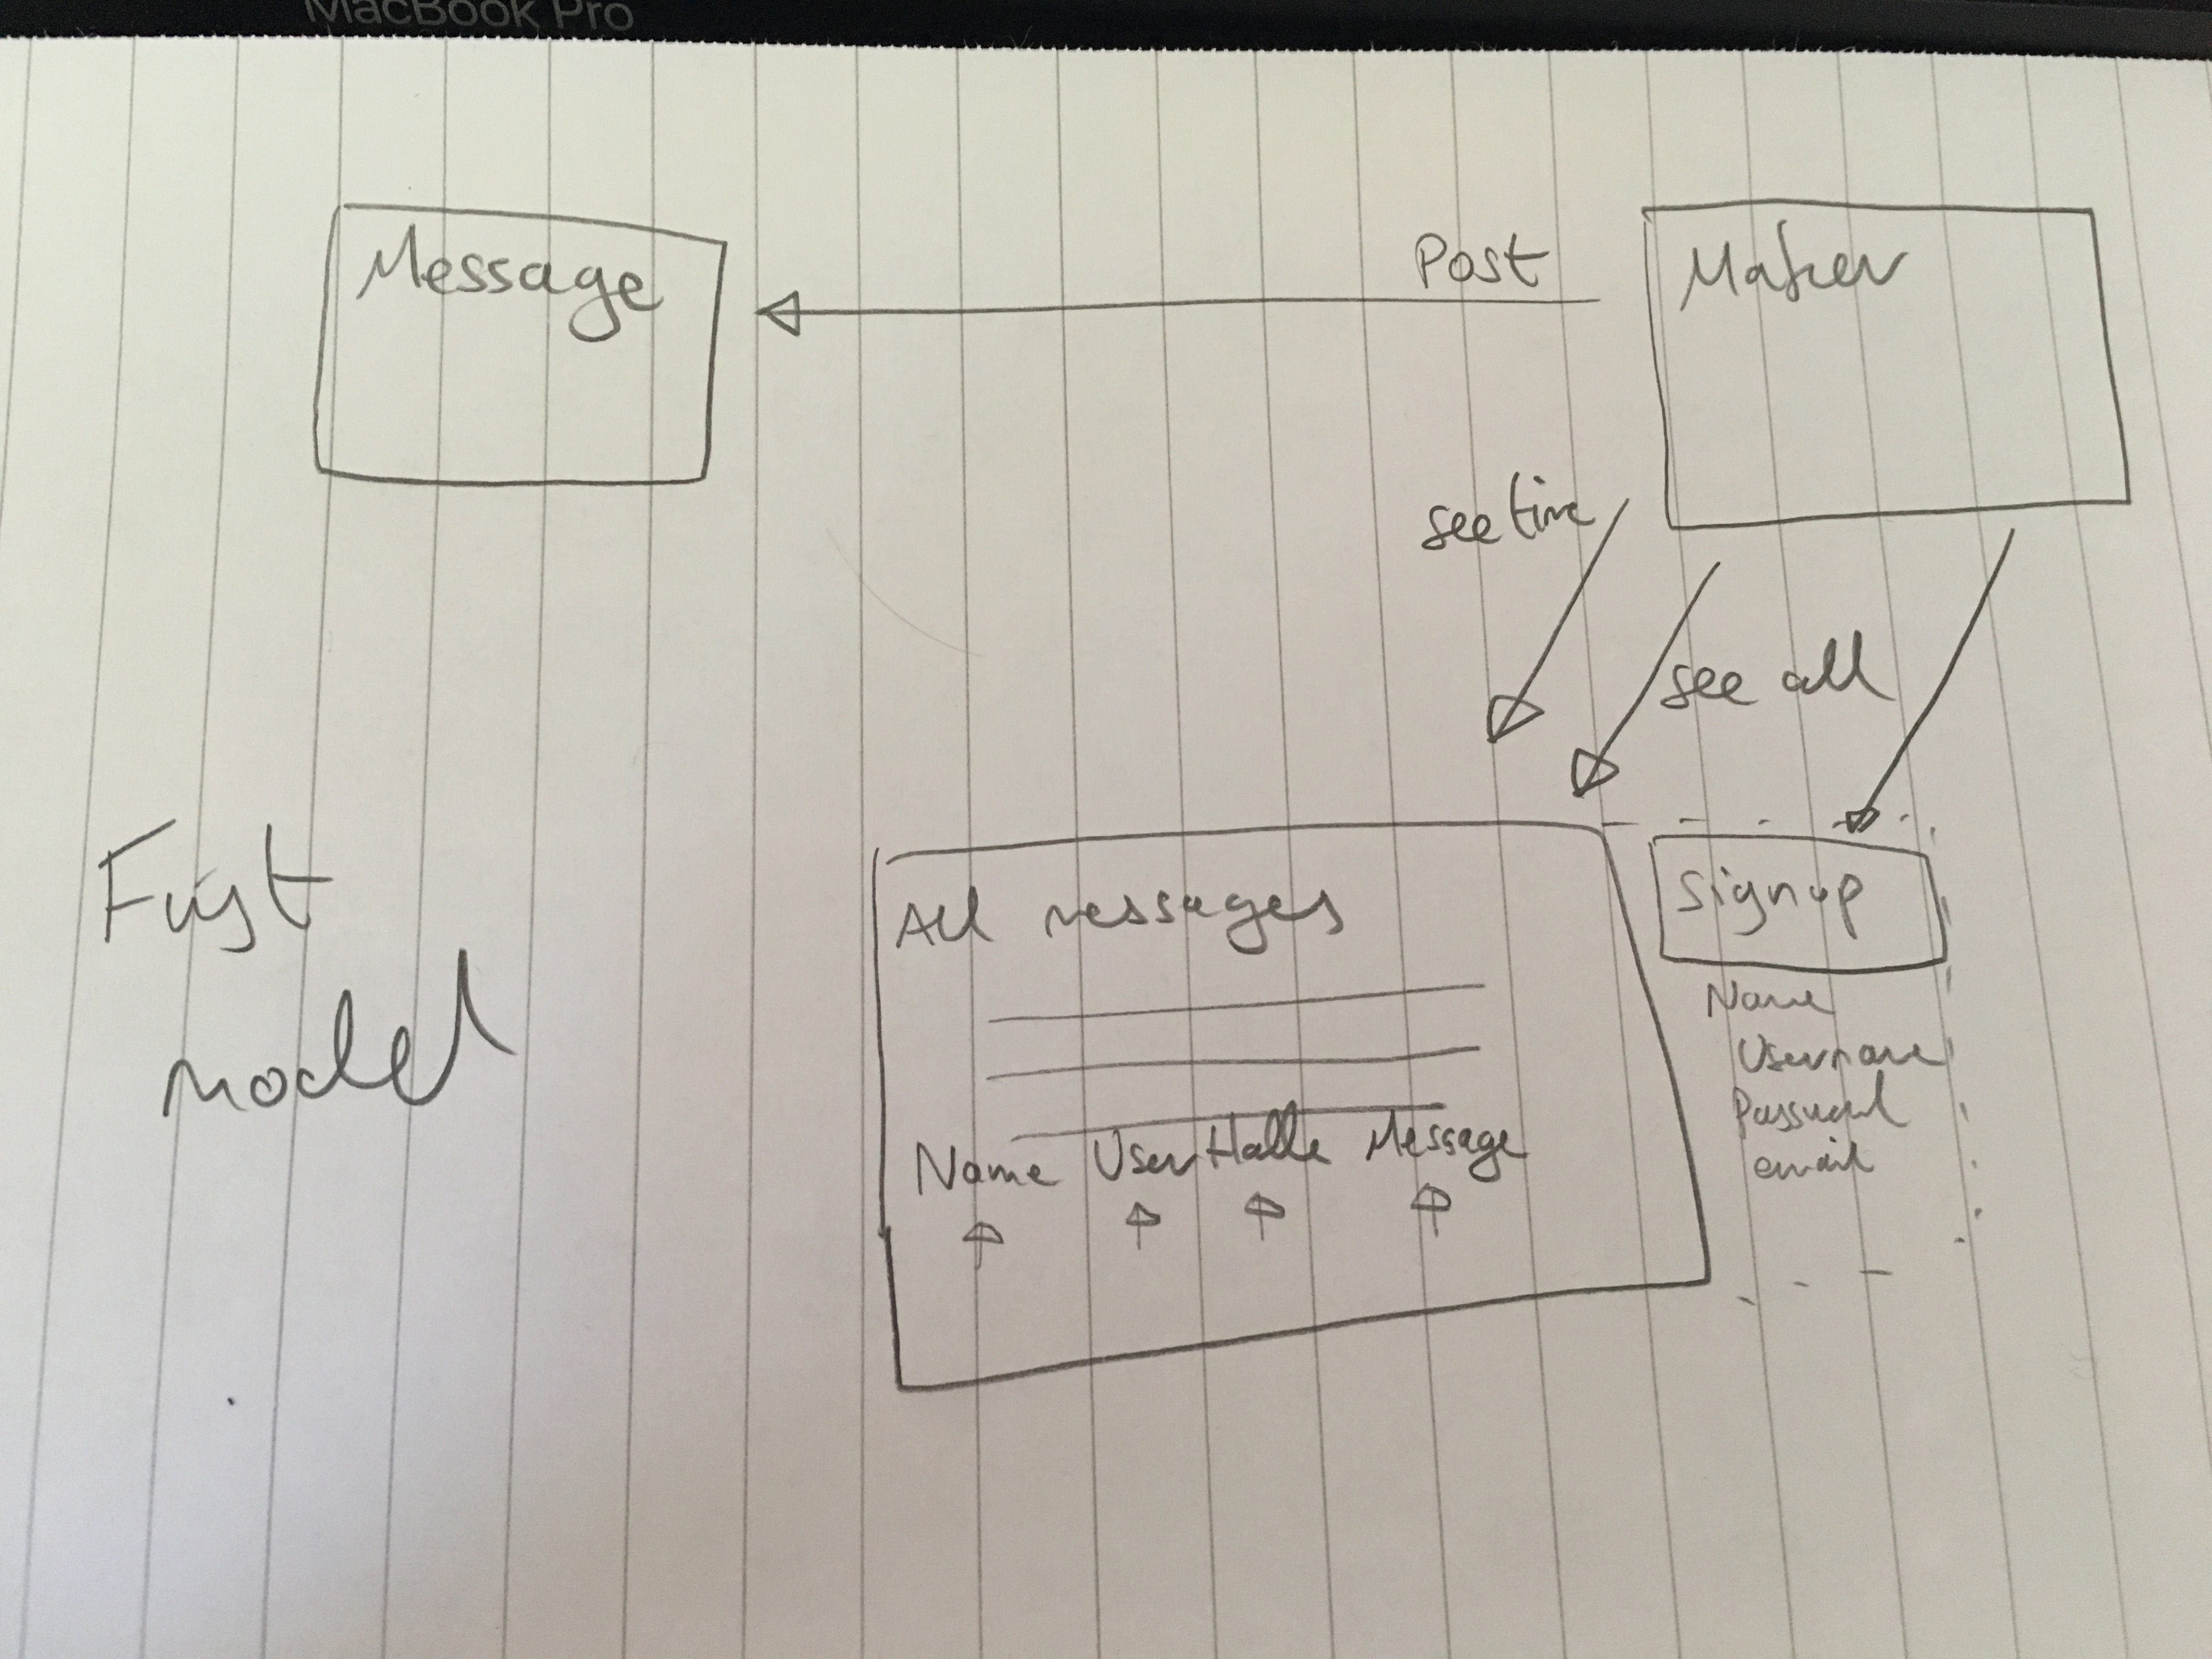 MacBook Pro
Message
Post
Maker
First
model
see time
see all
All messages
Name UserHadle Message
Sign up
Name
Username
Password
email